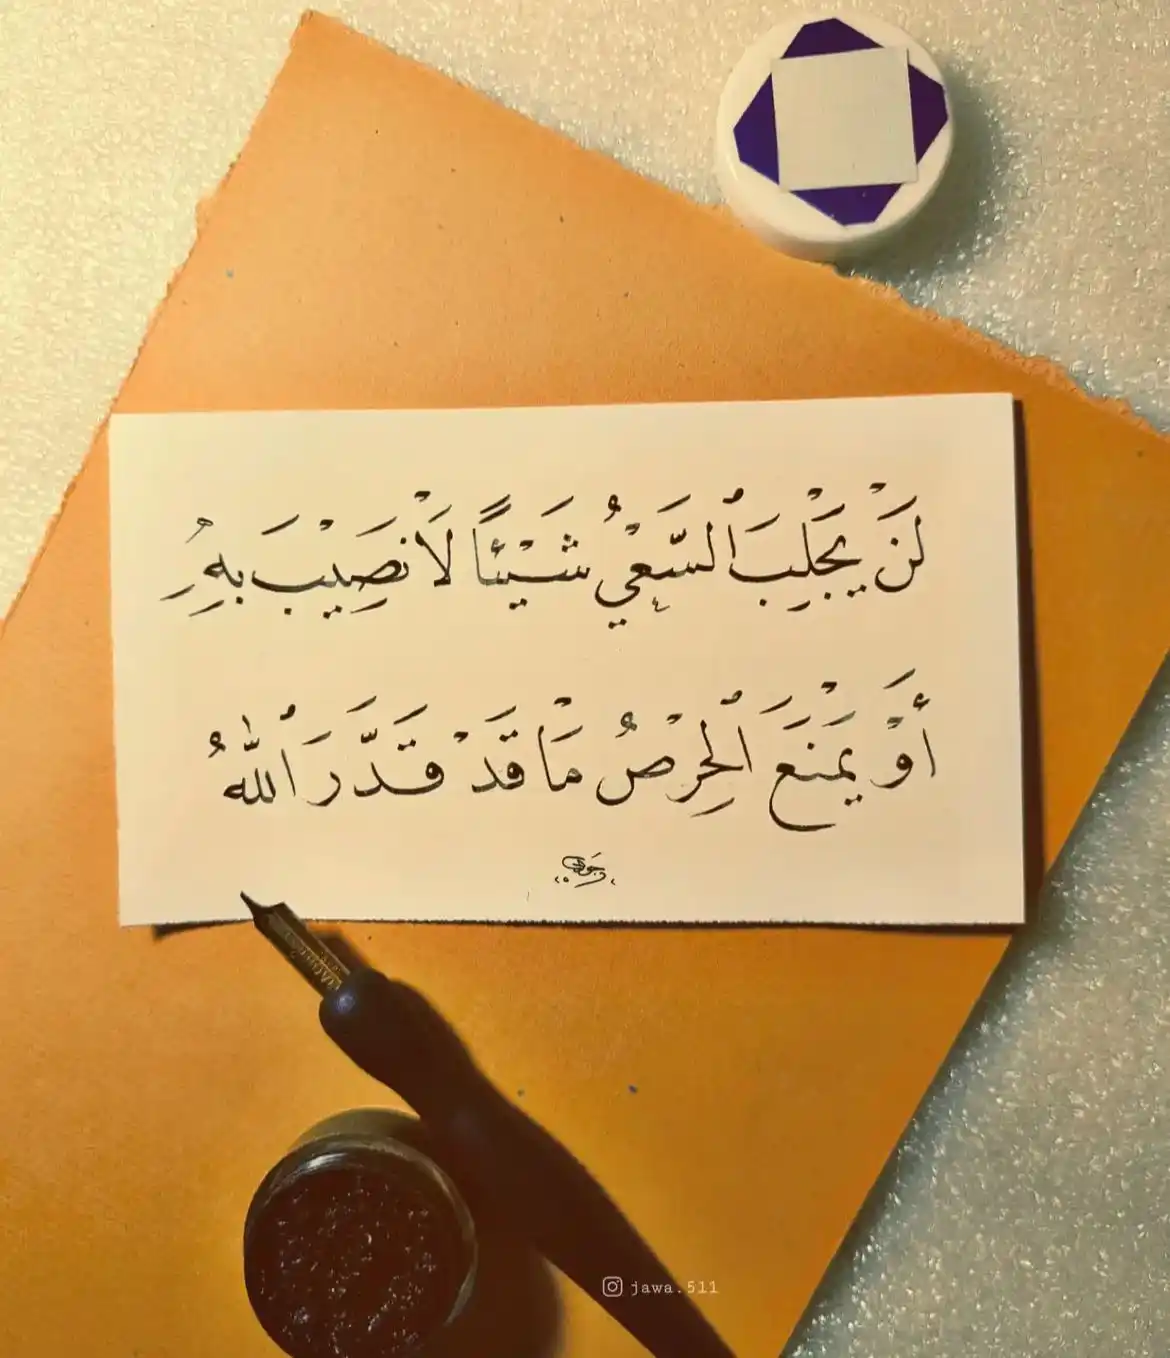 لَنْ يَجْلِبَ ٱلسَّعْيُ شَيْئًا لَا نَصِيْبَ بِهِ
أَوْ يَمْنَعَ ٱلْحِرْصُ مَا قَدْ قَدَّرَ ٱللّٰهُ
jawa.511